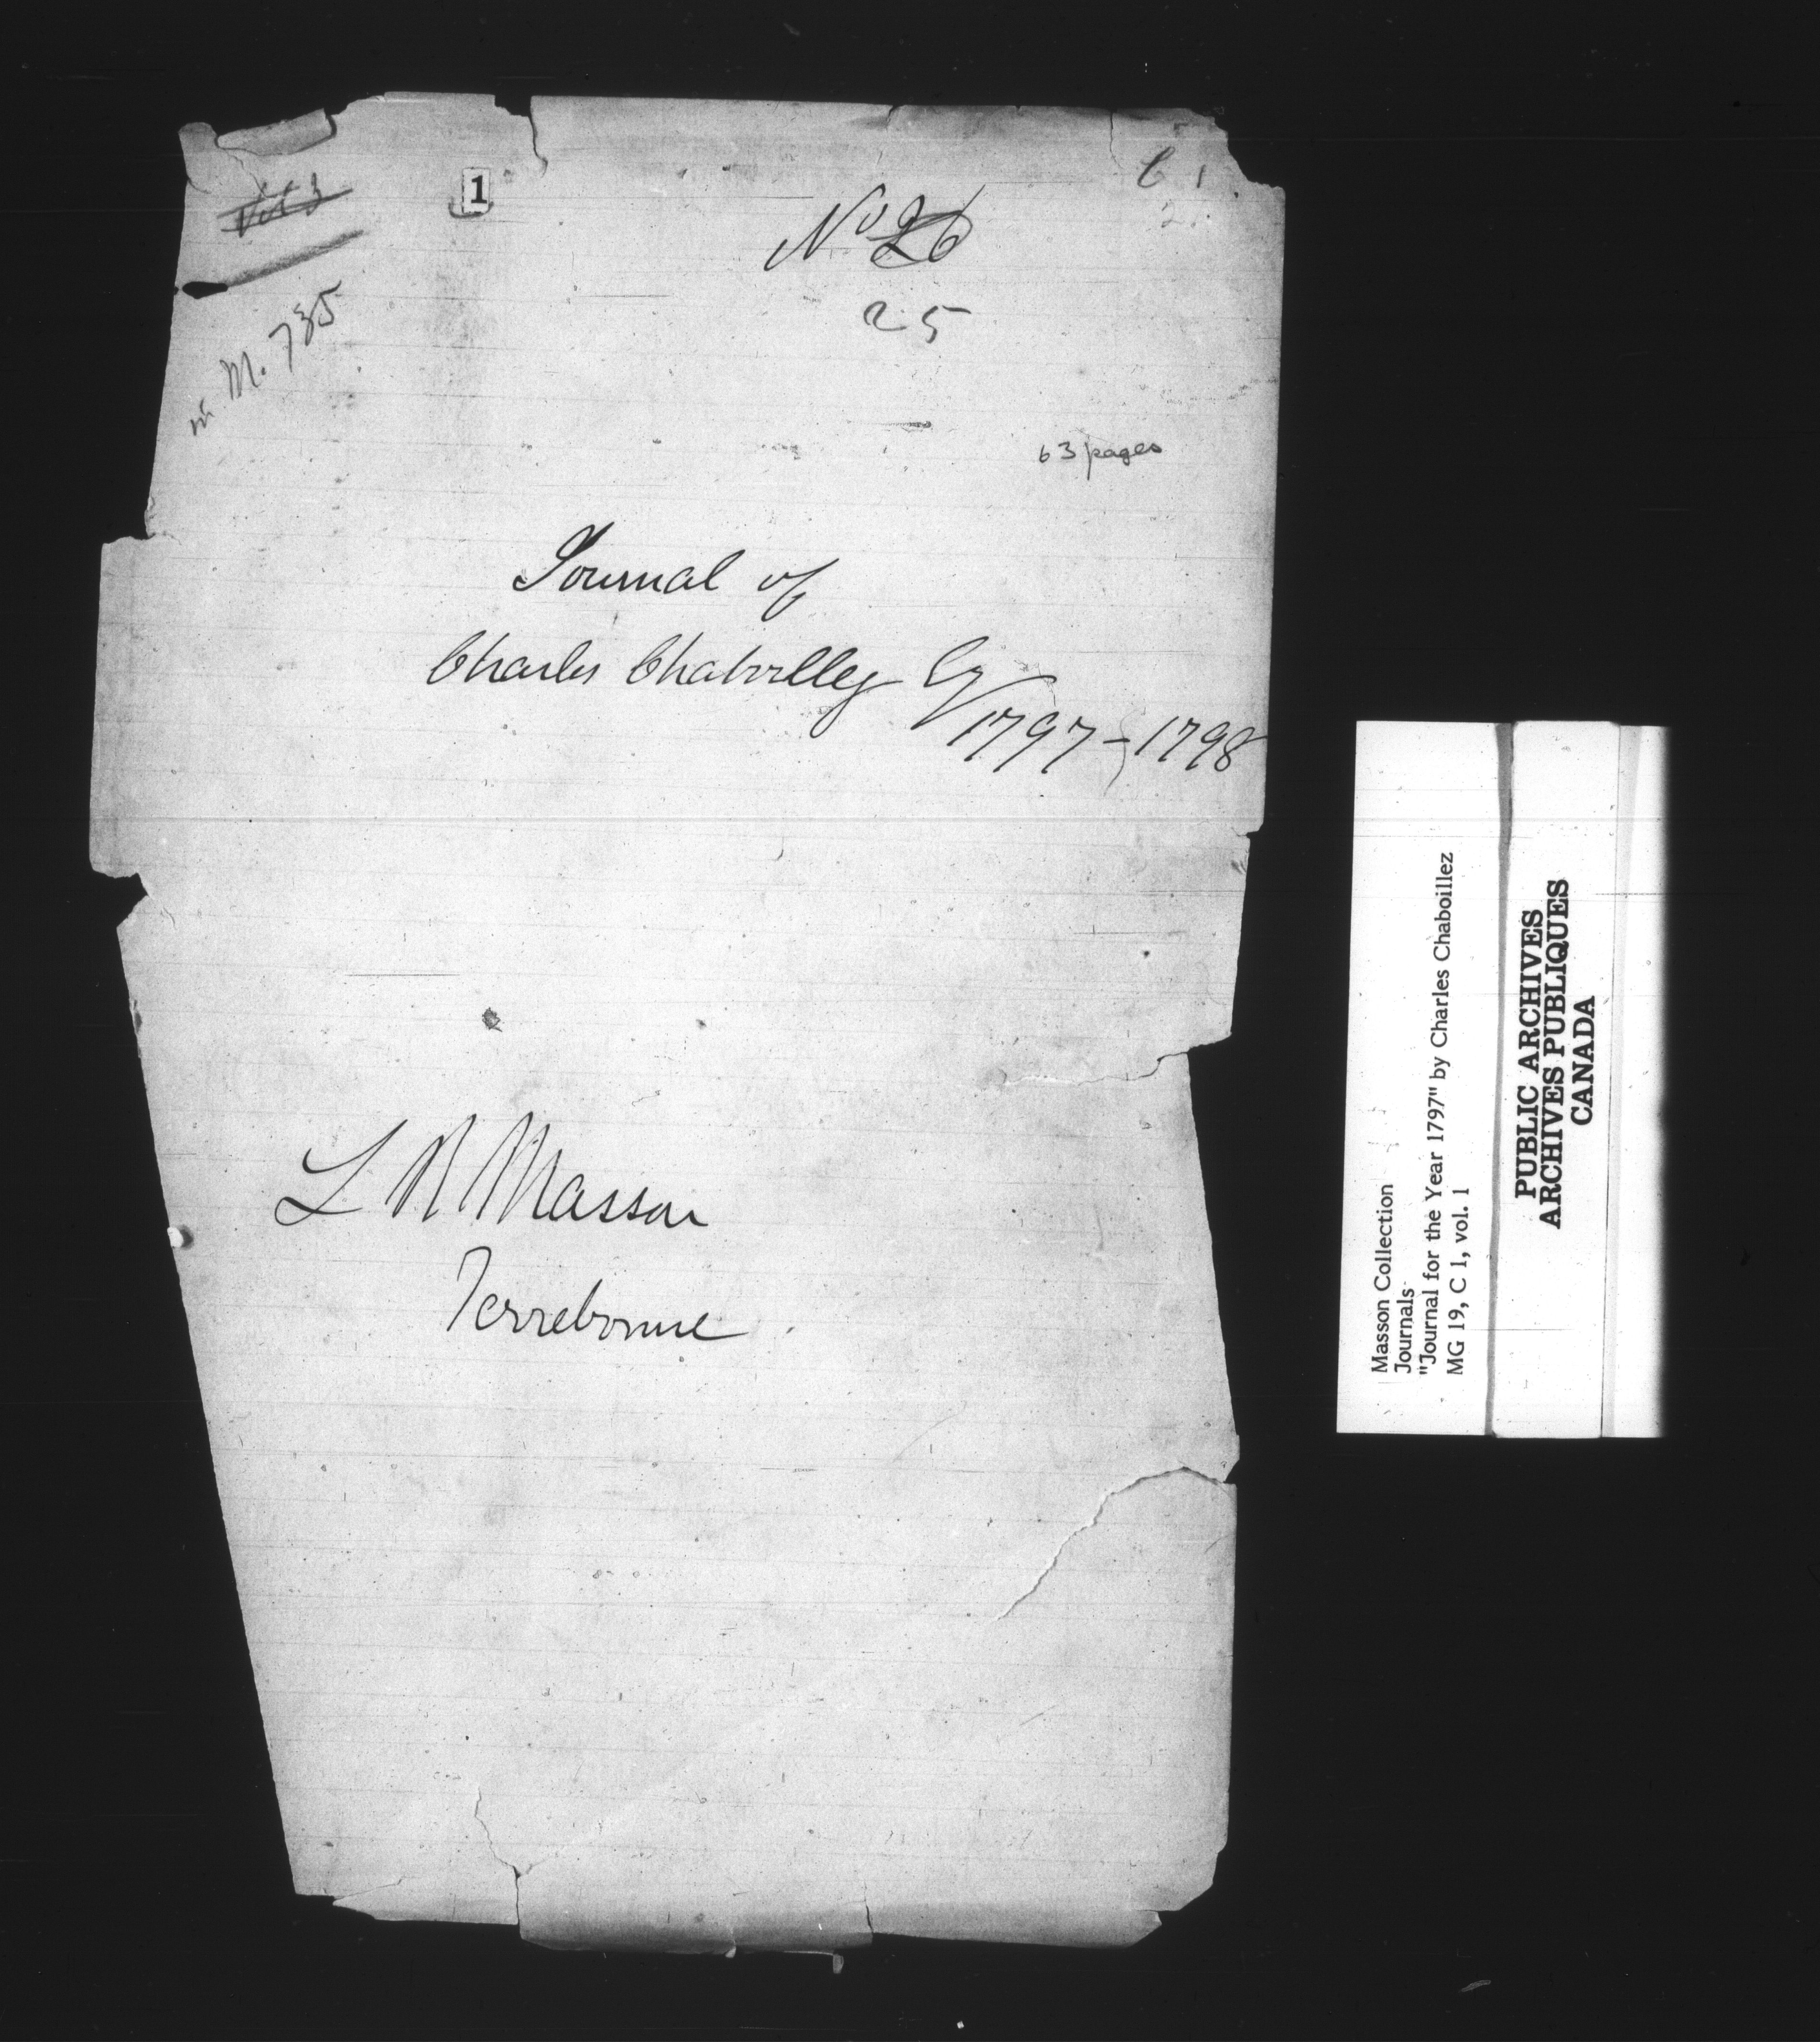 C 1
1
No 26
25
in M. 735
63 pages
Journal of
Charles Chaboilley Esq
1797-1798
L R Masson
Terrebonne
Masson Collection
Journals
"Journal for the Year 1797" by Charles Chaboillez
MG 19, C 1, vol. 1
PUBLIC ARCHIVES
ARCHIVES PUBLIQUES
CANADA